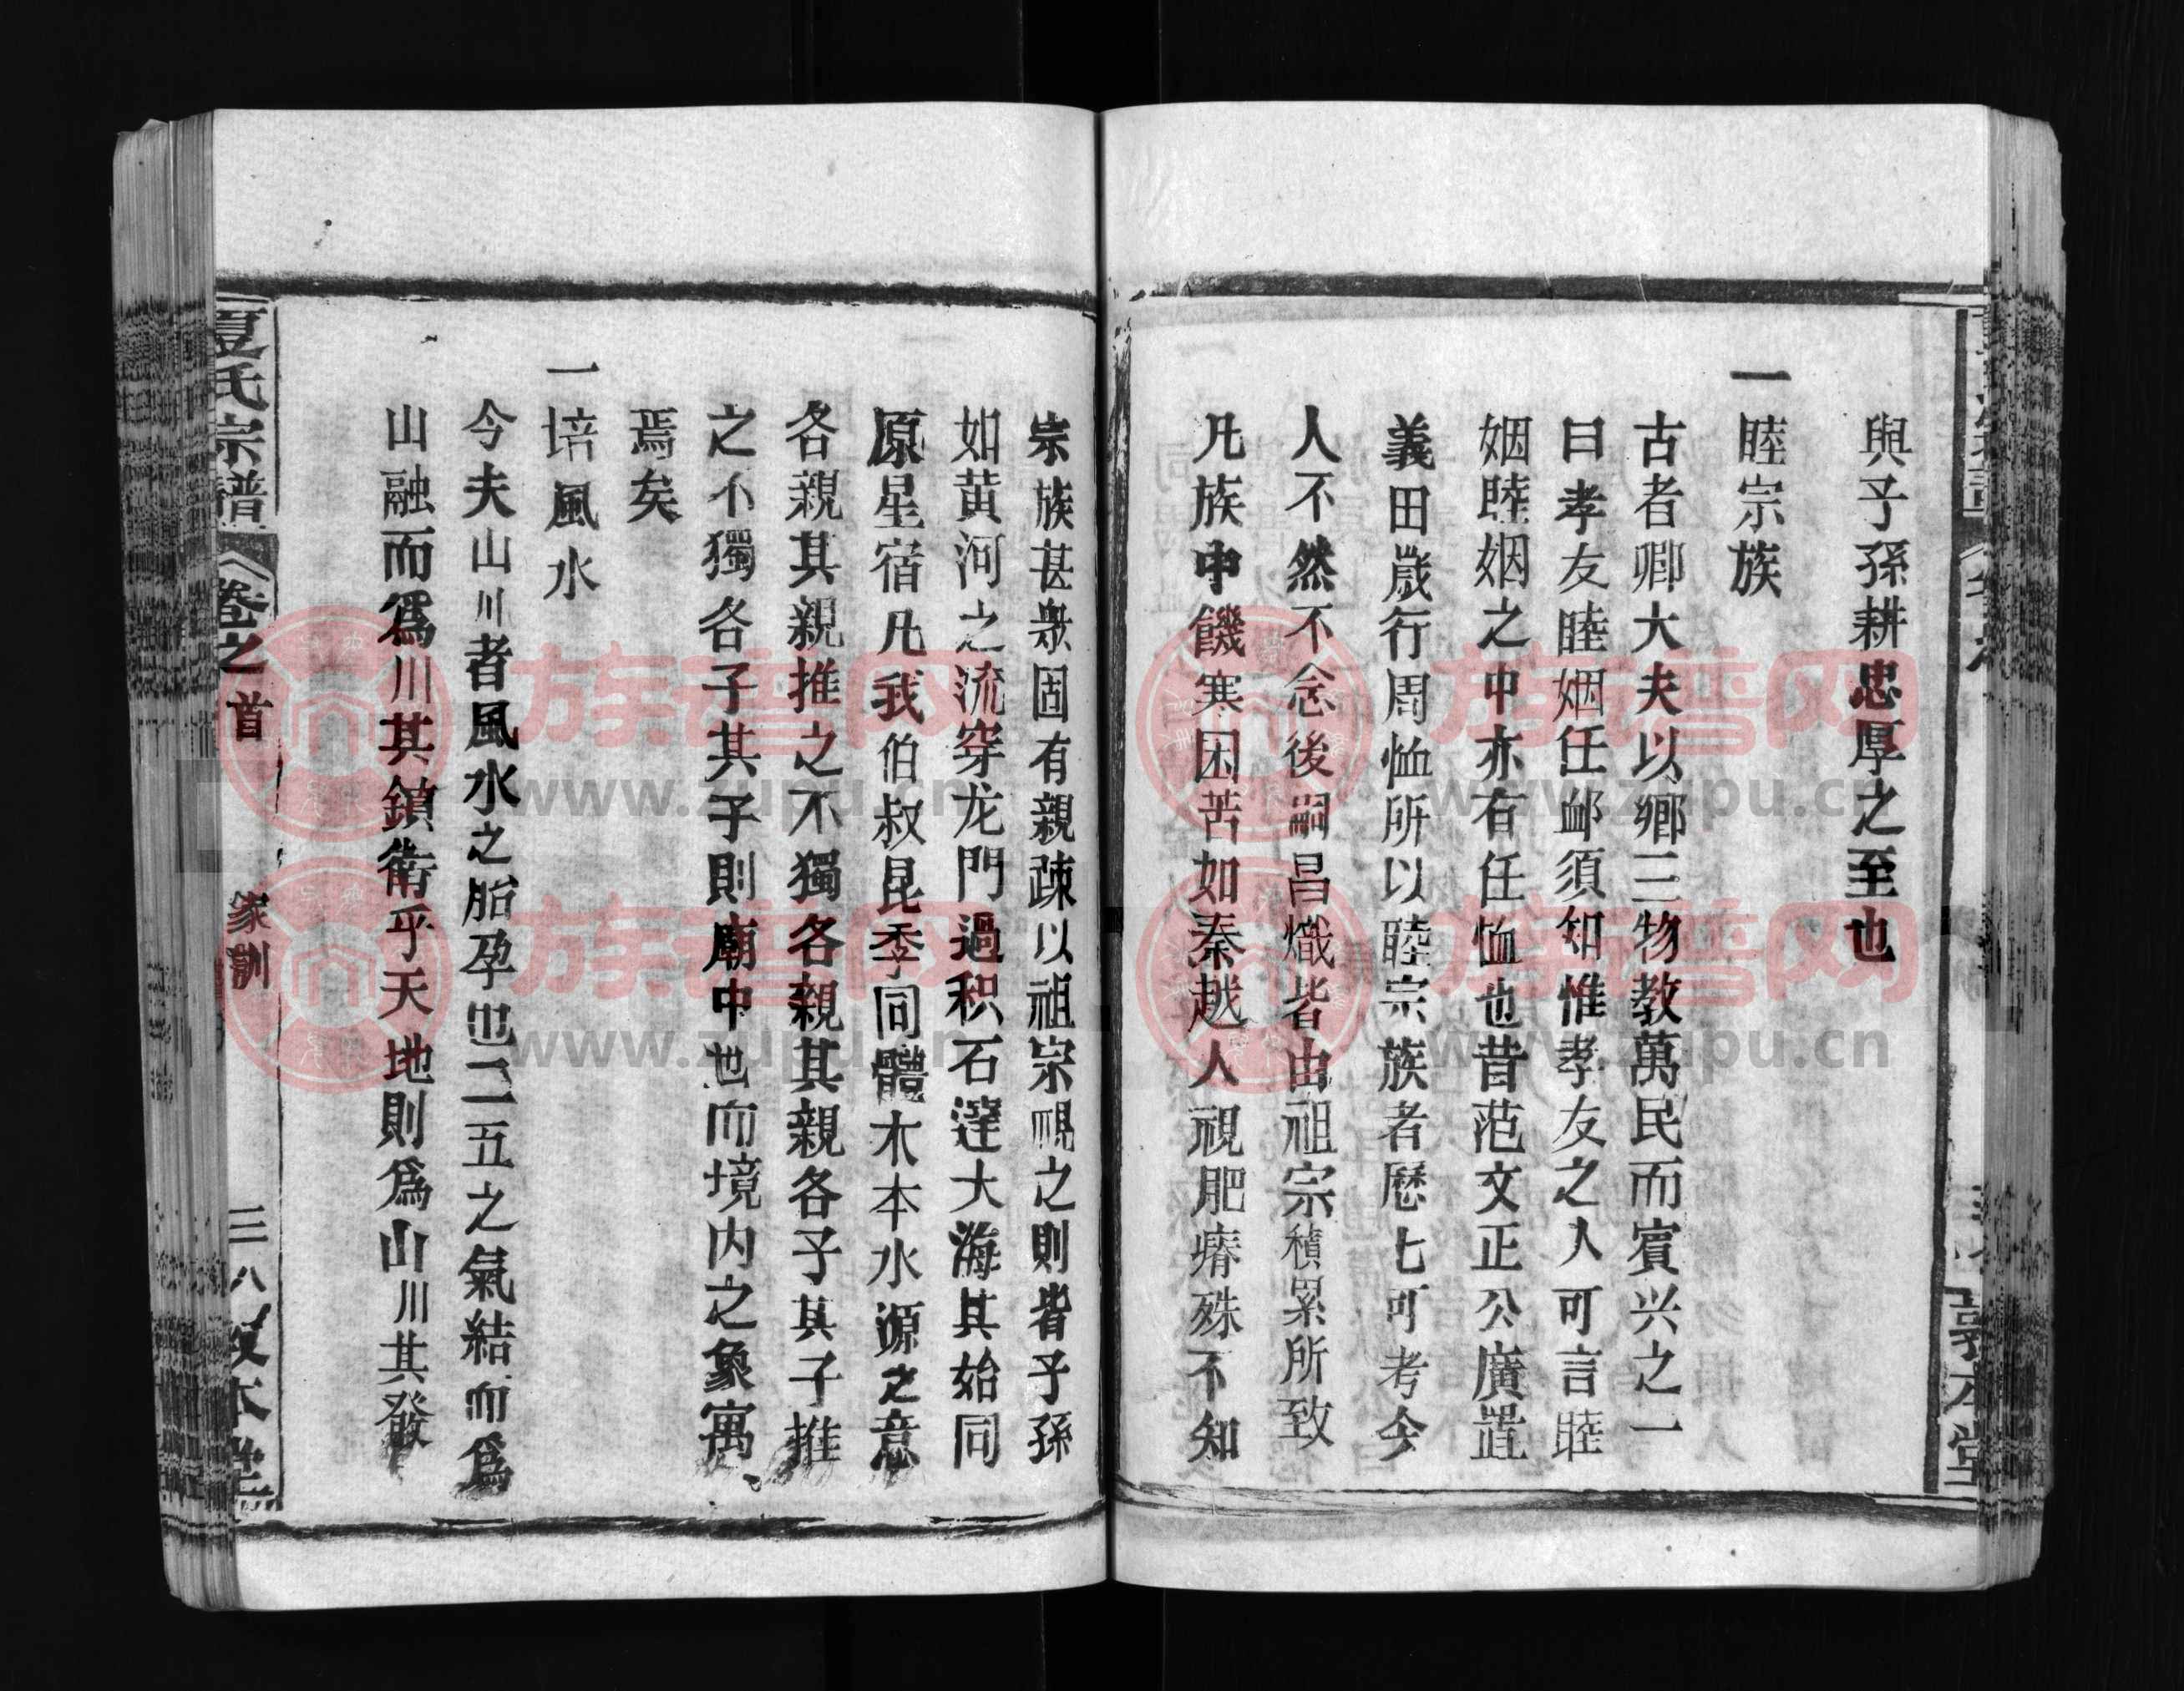 與子孫耕忠厚之至也
一睦宗族
古者卿大夫以鄉三物教萬民而賓兴之一
曰孝友睦姻任䘏須知惟孝友之人可言睦
姻睦姻之中亦有任恤也昔范文正公廣置
義田歲行周恤所以睦宗族者歷七可考今
人不然不念後嗣昌熾皆由祖宗積累所致
凡族中饑寒困苦如秦越人視肥瘠殊不知
宗族甚衆固有親疎以祖宗視之則皆子孫
如黄河之流穿龙門過积石達大海其始同
原星宿凡我伯叔昆季同體木本水源之意
各親其親推之不獨各親其親各子其子推
之不獨各子其子則廟中也而境内之象寓
焉矣
一培風水
今夫山川者風水之胎孕也二五之氣結而爲
山融而爲川其鎮衛乎天地則爲山川其發
夏氏宗譜
卷之首
家訓
三八
敦本堂
敦本堂
族谱网
www.zupu.cn
族谱网
www.zupu.cn
族谱网
www.zupu.cn
族谱网
www.zupu.cn